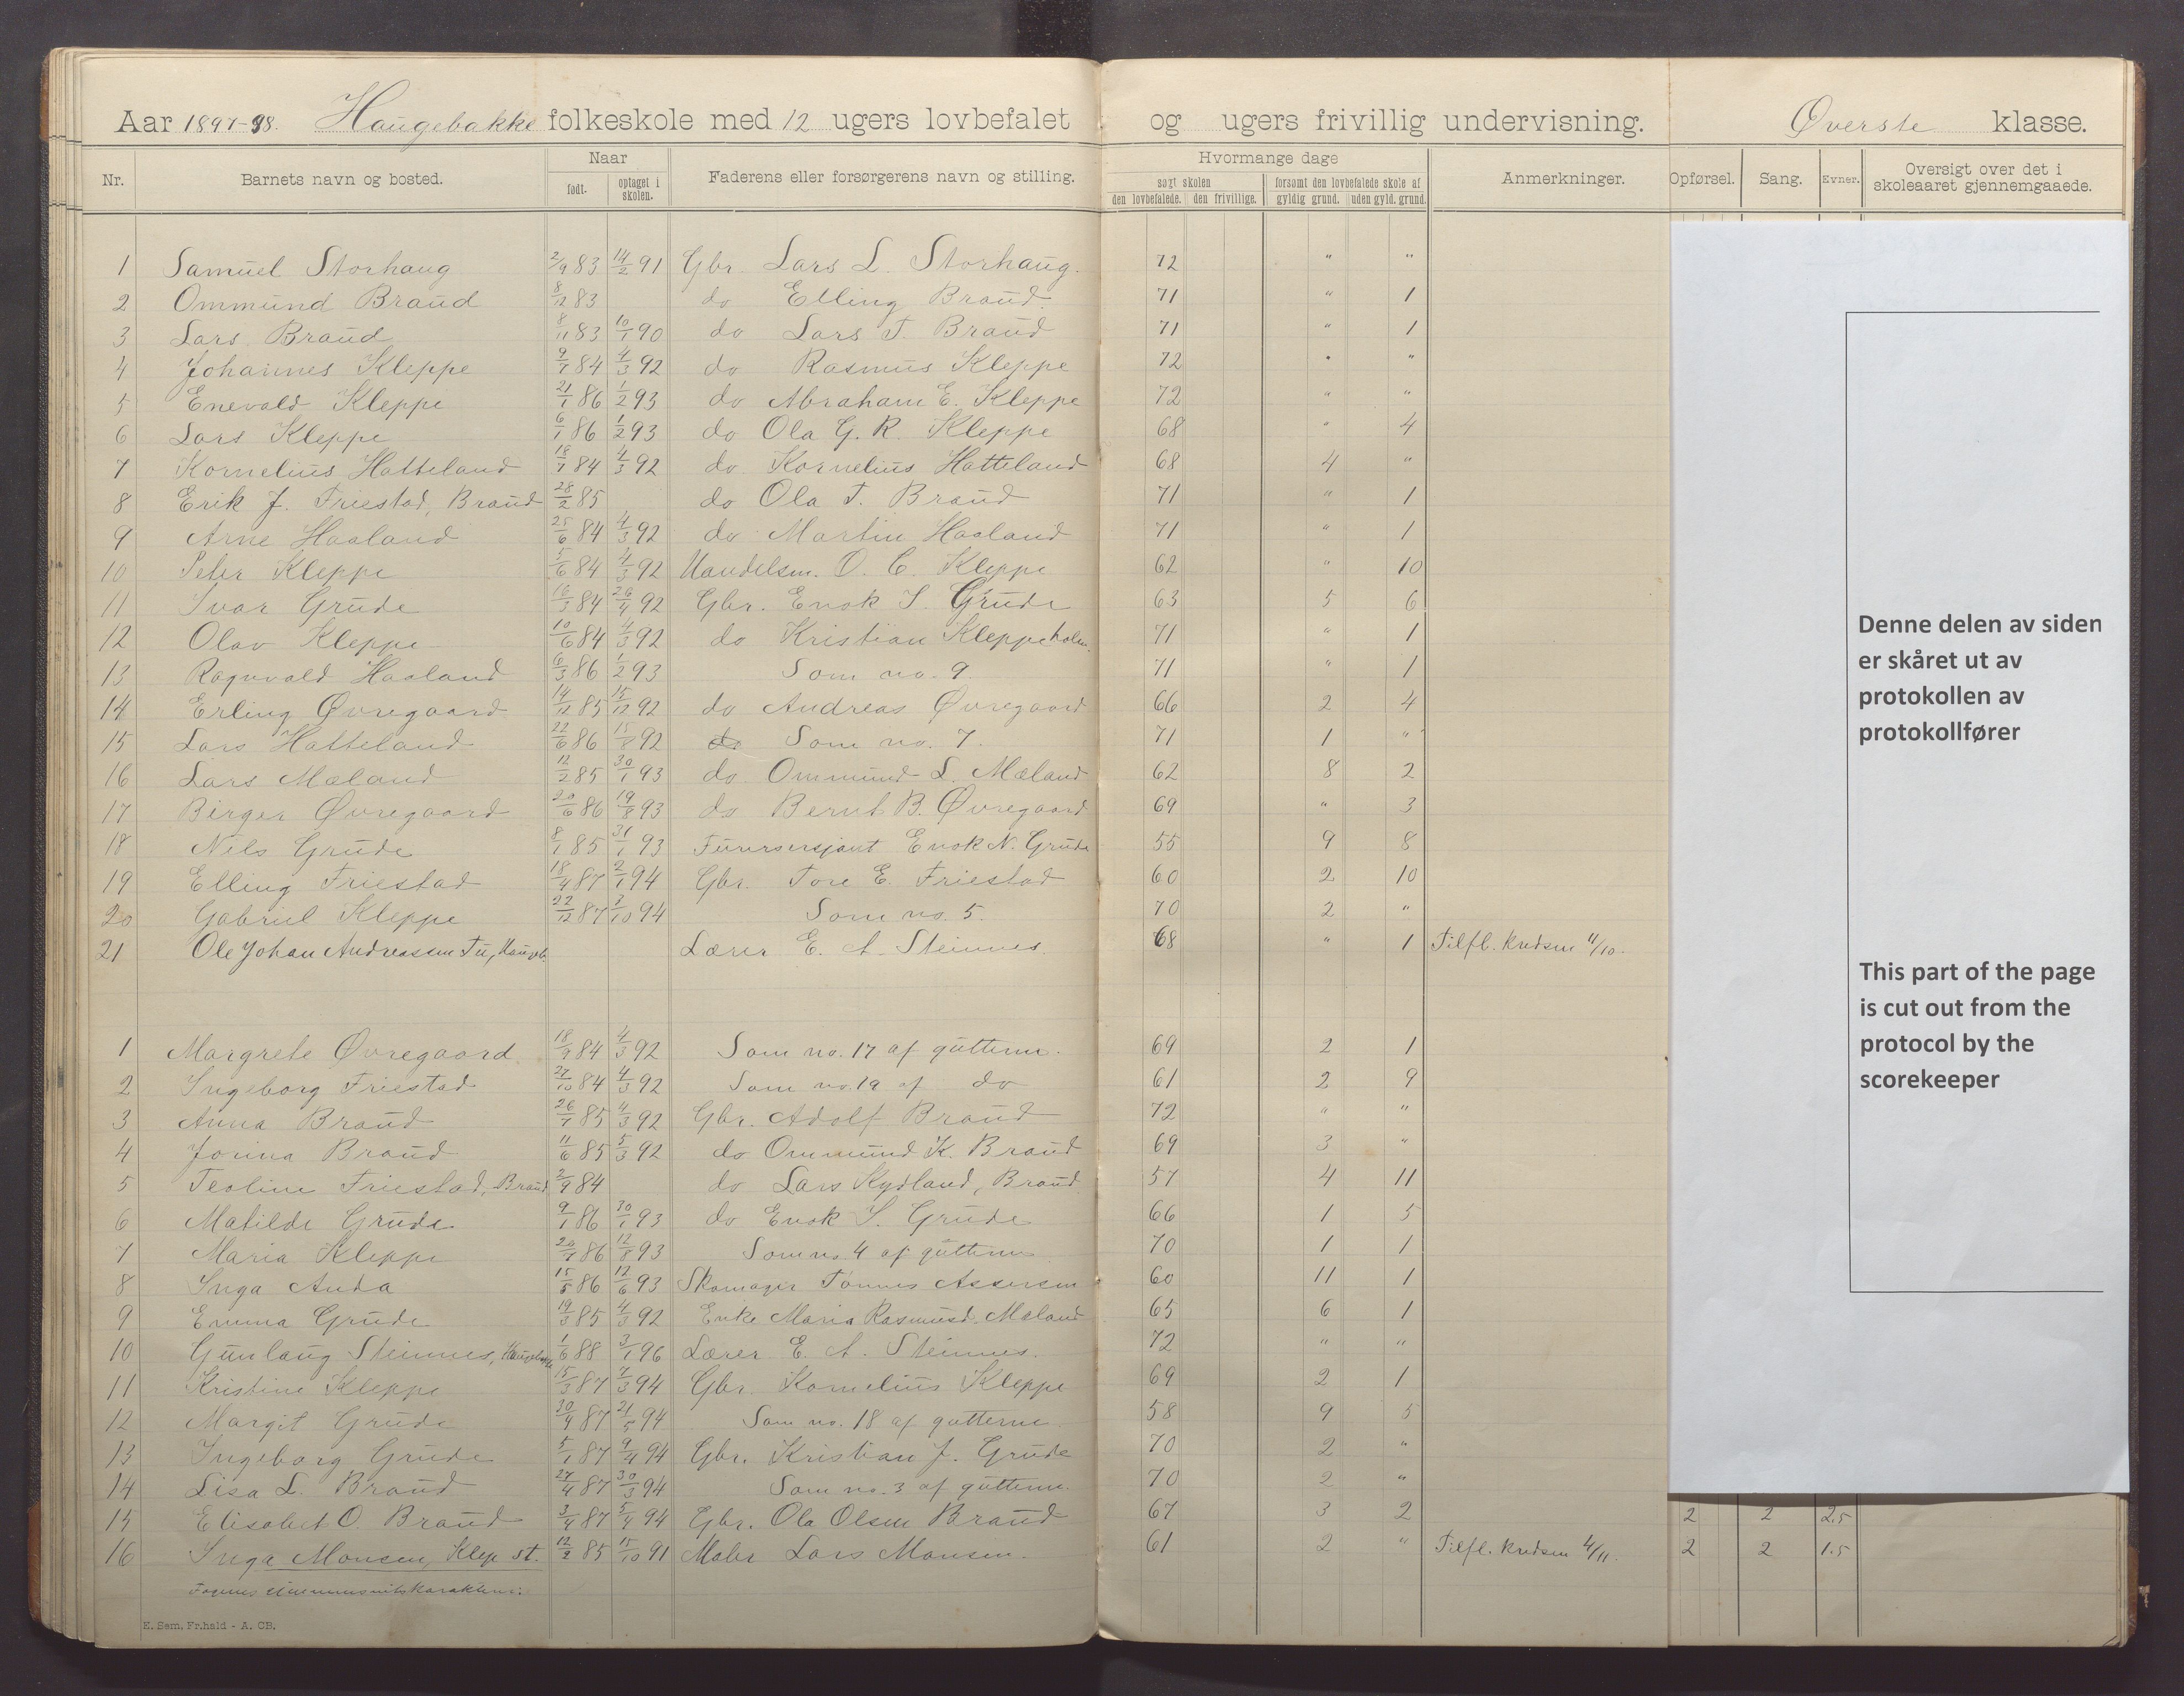 Aar 1897-98. Haugebakke folkeskole med 12 ugers lovbefalet og ugers frivillig undervisning. Øverste klasse.
Nr. Barnets navn og bosted. Naar født. optaget i skolen. Faderens eller forsørgerens navn og stilling. Hvormange dage søgt skolen den lovbefalede. den frivillige. forsømt den lovbefalede skole af gyldig grund. uden gyld. grund. Anmerkninger. Opførsel. Sang. Evner. Oversigt over det i skoleaaret gjennemgaaede.
1 Samuel Storhaug 2/9 83 14/2 91 Gbr. Lars L. Storhaug. 72 " "
2 Ommund Braud 8/12 83 do Elling Braud. 71 " 1
3 Lars Braud 8/11 83 10/1 90 do Lars T. Braud 71 " 1
4 Johannes Kleppe 9/1 84 4/3 92 do Rasmus Kleppe 72 " "
5 Enevald Kleppe 21/1 86 1/2 93 do Abraham E. Kleppe 72 " "
6 Lars Kleppe 6/1 86 1/2 93 do Ola G. R. Kleppe 68 " 4
7 Kornelius Hatteland 18/7 84 4/3 92 do Kornelius Hatteland 68 4 "
8 Erik J. Friestad, Braud 28/2 85 do Ola T. Braud 71 " 1
9 Arne Haaland 25/6 84 4/3 92 do Martin Haaland 71 " 1
10 Peter Kleppe 5/6 84 4/3 92 Handelsm. O. C. Kleppe 62 " 10
11 Ivar Grude 16/3 84 26/4 92 Gbr. Enok S. Grude 63 5 6
12 Olav Kleppe 10/6 84 4/3 92 do Kristian Kleppeholen. 71 " 1
13 Ragnvald Haaland 6/3 86 1/2 93 Som no. 9. 71 " 1
14 Erling Øvregaard 14/12 85 15/12 92 do Andreas Øvregaard 66 2 4
15 Lars Hatteland 22/6 86 15/8 92 do Som no. 7. 71 1 "
16 Lars Mæland 12/2 85 30/1 93 do Ommund L. Mæland 62 8 2
17 Birger Øvregaard 20/6 86 19/8 93 do Bernt B. Øvregaard 69 " 3
18 Nils Grude 8/1 85 31/1 93 Enok N. Grude 55 9 8
19 Elling Friestad 18/4 87 2/1 94 Gbr. Tore E. Friestad 60 2 10
20 Gabriel Kleppe 22/12 87 3/10 94 Som no. 5. 70 2 "
21 Ole Johan Andreassen Tu, Haugeb. Lærer E. A. Steinnes. 68 " 1 Tilfl. kredsen 11/10.
1 Margrete Øvregaard. 18/9 84 4/3 92 Som no. 17 af gutterne. 69 2 1
2 Ingeborg Friestad 27/10 84 4/3 92 Som no. 19 af do 61 2 9
3 Anna Braud 26/7 85 4/3 92 Gbr. Adolf Braud 72 " "
4 Jonina Braud 11/6 85 5/3 92 do Ommund K. Braud 69 3 "
5 Teoline Friestad, Braud 2/9 84 do Lars Kydland, Braud 57 4 11
6 Matilde Grude 9/1 86 30/1 93 do Enok S. Grude 66 1 5
7 Maria Kleppe 20/7 86 12/8 93 Som no. 4 af gutterne 70 1 1
8 Inga Anda 15/5 86 12/6 93 Skomager Tønnes Assersen 60 11 1
9 Emma Grude 19/3 85 4/3 92 Enke Maria Rasmusd. Mæland 65 6 1
10 Gunlaug Steinnes, Haugebakke 1/6 88 3/1 96 Lærer E. A. Steinnes. 72 " "
11 Kristine Kleppe 15/3 87 7/3 94 Gbr. Kornelius Kleppe 69 2 1
12 Margit Grude 30/4 87 21/5 94 Som no. 18 af gutterne. 58 9 5
13 Ingeborg Grude 5/1 87 9/4 94 Gbr. Kristian J. Grude 70 2 "
14 Lisa L. Braud 27/4 87 30/3 94 Som no. 3 af gutterne. 70 2 "
15 Elisabet O. Braud 3/4 87 5/4 94 Gbr. Ola Olsen Braud 67 3 2 2 2 2.5
16 Inga Monsen, Klep st. 12/2 85 15/10 91 Maler Lars Monsen. 61 2 " Tilfl. kredsen 4/11. 2 2 1.5
E. Sem, Fr.hald - A. CB.
Denne delen av siden
er skåret ut av
protokollen av
protokollfører
This part of the page
is cut out from the
protocol by the
scorekeeper